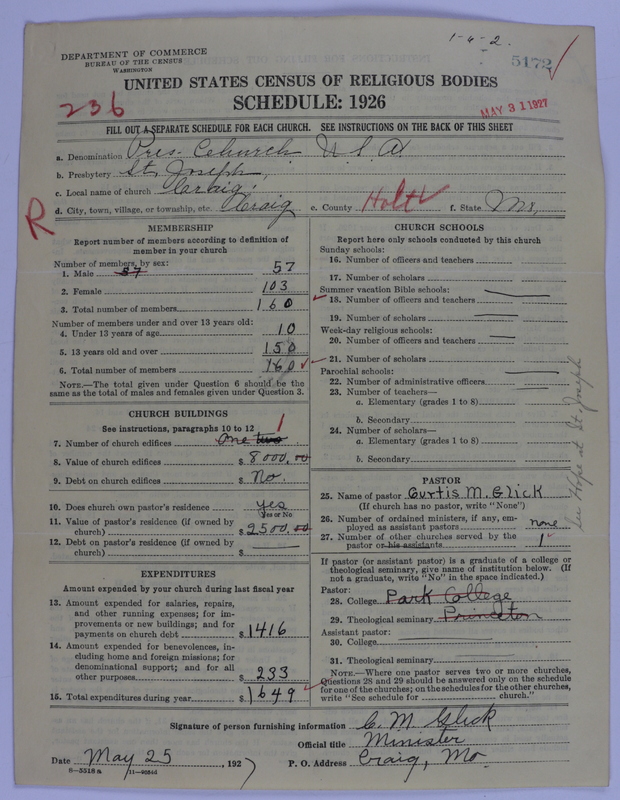 1-4-2.
DEPARTMENT OF COMMERCE
BUREAU OF THE CENSUS
WASHINGTON
5172
UNITED STATES CENSUS OF RELIGIOUS BODIES
236
SCHEDULE: 1926
MAY 31 1927
FILL OUT A SEPARATE SCHEDULE FOR EACH CHURCH. SEE INSTRUCTIONS ON THE BACK OF THIS SHEET
a. Denomination Pres. Church U.S.A.
b. Presbytery St. Joseph,
c. Local name of church Craig,
d. City, town, village, or township, etc. Craig e. County Holt f. State Mo,
R
MEMBERSHIP
Report number of members according to definition of
member in your church
Number of members, by sex:
1. Male 57 57
2. Female 103
3. Total number of members 160
Number of members under and over 13 years old:
4. Under 13 years of age 10
5. 13 years old and over 150
6. Total number of members 160
NOTE.—The total given under Question 6 should be the
same as the total of males and females given under Question 3.
CHURCH BUILDINGS
See instructions, paragraphs 10 to 12 1
7. Number of church edifices one two
8. Value of church edifices $ 8000.00
9. Debt on church edifices $ No.
10. Does church own pastor's residence yes
Yes or No
11. Value of pastor's residence (if owned by
church) $ 2500.00
12. Debt on pastor's residence (if owned by
church) $
EXPENDITURES
Amount expended by your church during last fiscal year
13. Amount expended for salaries, repairs,
and other running expenses; for im-
provements or new buildings; and for
payments on church debt $ 1416
14. Amount expended for benevolences, in-
cluding home and foreign missions; for
denominational support; and for all
other purposes 233
15. Total expenditures during year $ 1649
CHURCH SCHOOLS
Report here only schools conducted by this church
Sunday schools:
16. Number of officers and teachers
17. Number of scholars
Summer vacation Bible schools:
18. Number of officers and teachers
19. Number of scholars
Week-day religious schools:
20. Number of officers and teachers
21. Number of scholars
Parochial schools:
22. Number of administrative officers
23. Number of teachers—
a. Elementary (grades 1 to 8)
b. Secondary
24. Number of scholars—
a. Elementary (grades 1 to 8)
b. Secondary
See Hope at St. Joseph
PASTOR
25. Name of pastor Curtis M. Glick
(If church has no pastor, write "None")
26. Number of ordained ministers, if any, em-
ployed as assistant pastors none
27. Number of other churches served by the
pastor or his assistants 1
If pastor (or assistant pastor) is a graduate of a college or
theological seminary, give name of institution below. (If
not a graduate, write "No" in the space indicated.)
Pastor:
28. College Park College
29. Theological seminary Princeton
Assistant pastor:
30. College
31. Theological seminary
NOTE.—Where one pastor serves two or more churches,
Questions 28 and 29 should be answered only on the schedule
for one of the churches; on the schedules for the other churches,
write "See schedule for church."
Signature of person furnishing information C. M. Glick
Official title Minister
Date May 25, 1927 P. O. Address Craig, Mo.
8—5518 a 11—9584d